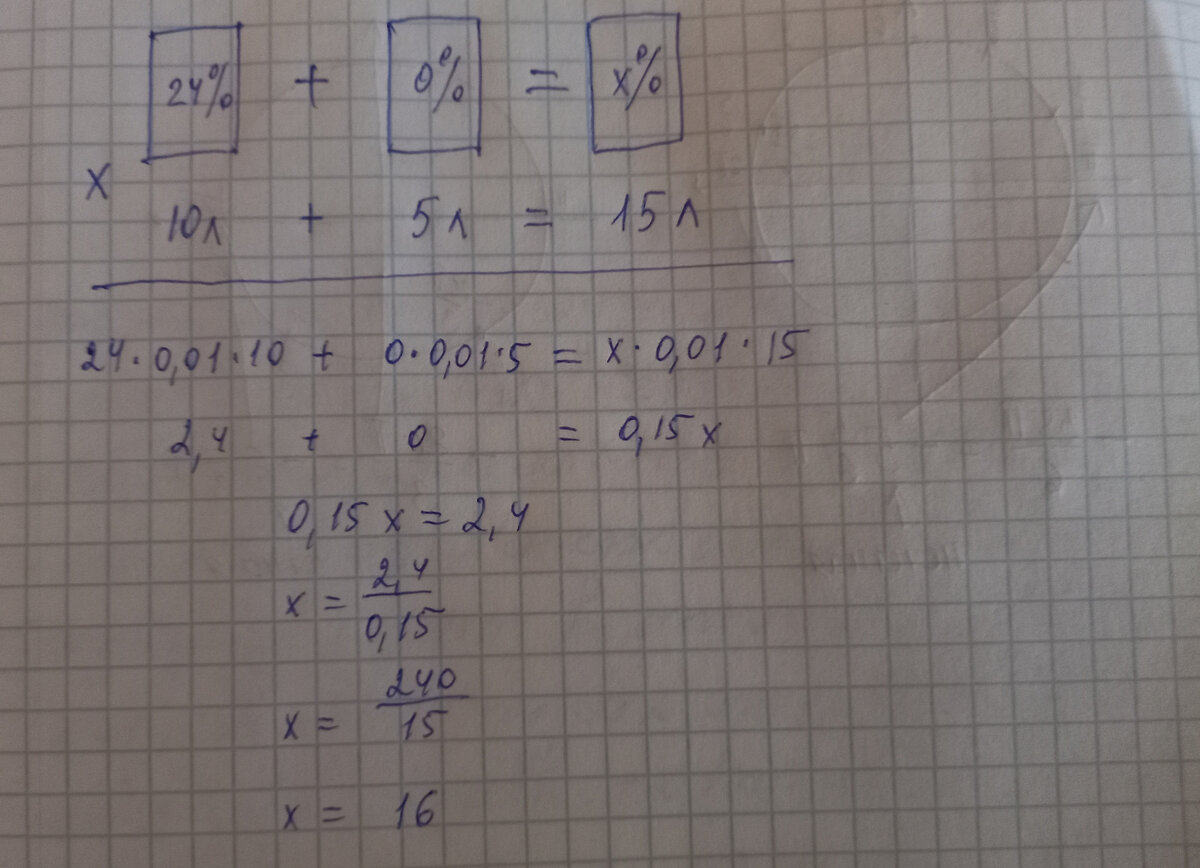 24% + 0% = x%
x
10л + 5л = 15л
24·0,01·10 + 0·0,01·5 = x·0,01·15
2,4 + 0 = 0,15x
0,15x = 2,4
x = 2,4/0,15
x = 240/15
x = 16